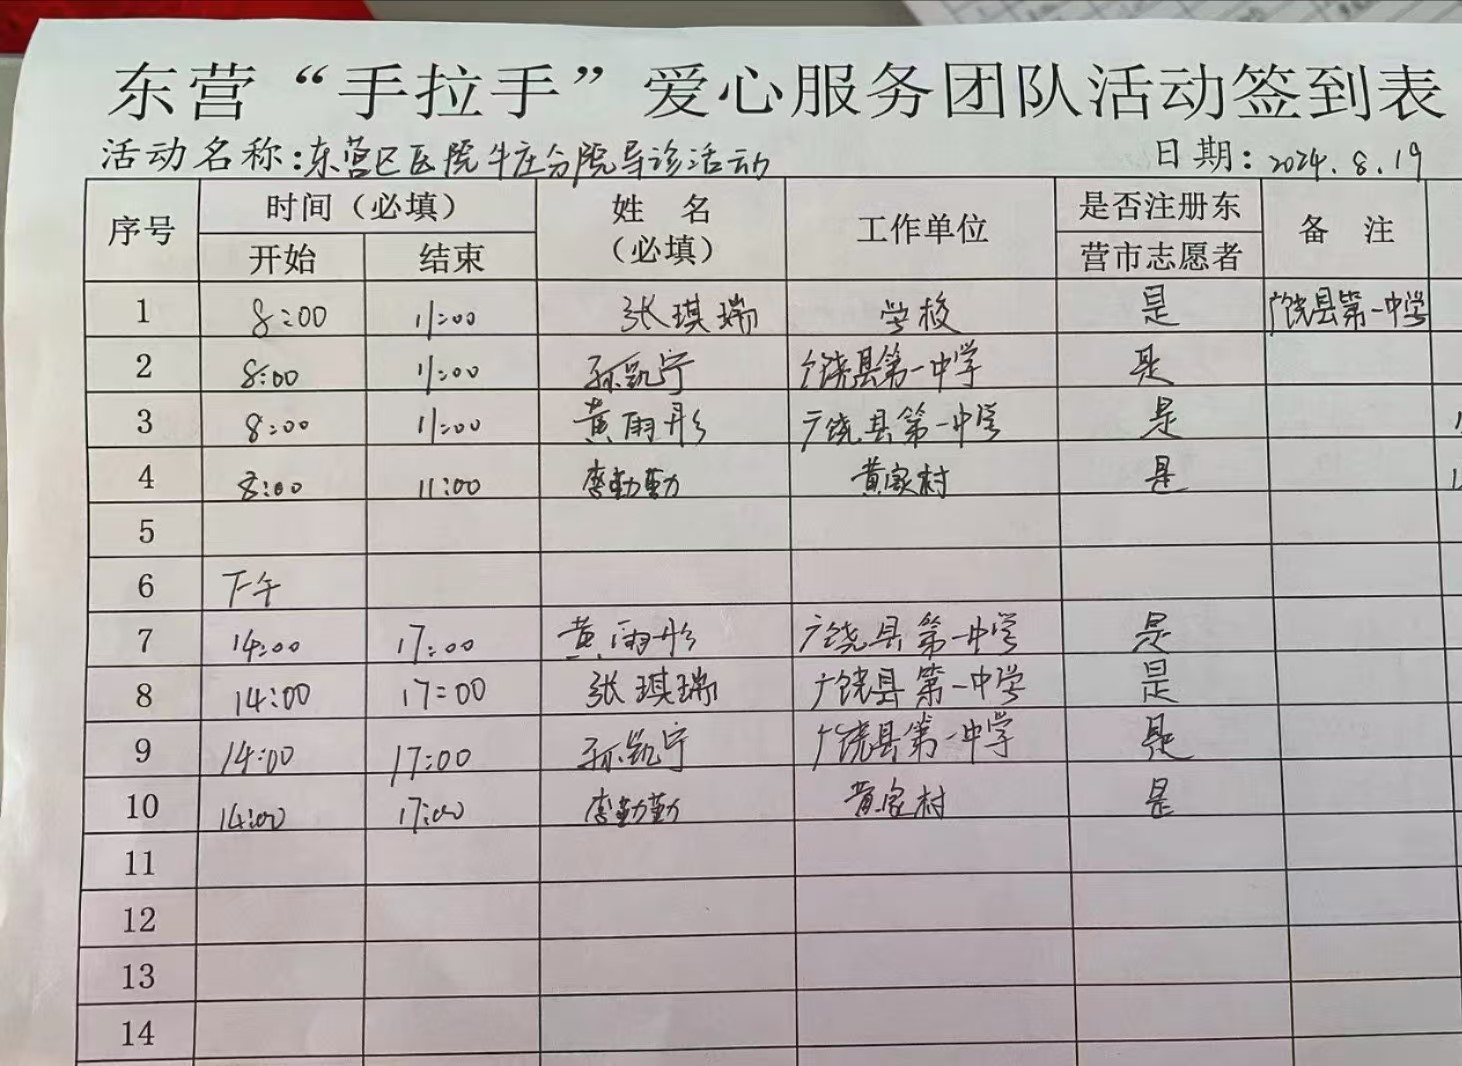 东营“手拉手”爱心服务团队活动签到表
活动名称:东营区医院牛庄分院导诊活动 日期:2024.8.19
序号 时间（必填） 姓 名（必填） 工作单位 是否注册东营市志愿者 备 注
开始 结束
1 8:00 11:00 张琪瑞 学校 是 广饶县第一中学
2 8:00 11:00 孙凯宁 广饶县第一中学 是
3 8:00 11:00 黄雨彤 广饶县第一中学 是
4 8:00 11:00 李勤勤 黄家村 是
5
6 下午
7 14:00 17:00 黄雨彤 广饶县第一中学 是
8 14:00 17:00 张琪瑞 广饶县第一中学 是
9 14:00 17:00 孙凯宁 广饶县第一中学 是
10 14:00 17:00 李勤勤 黄家村 是
11
12
13
14